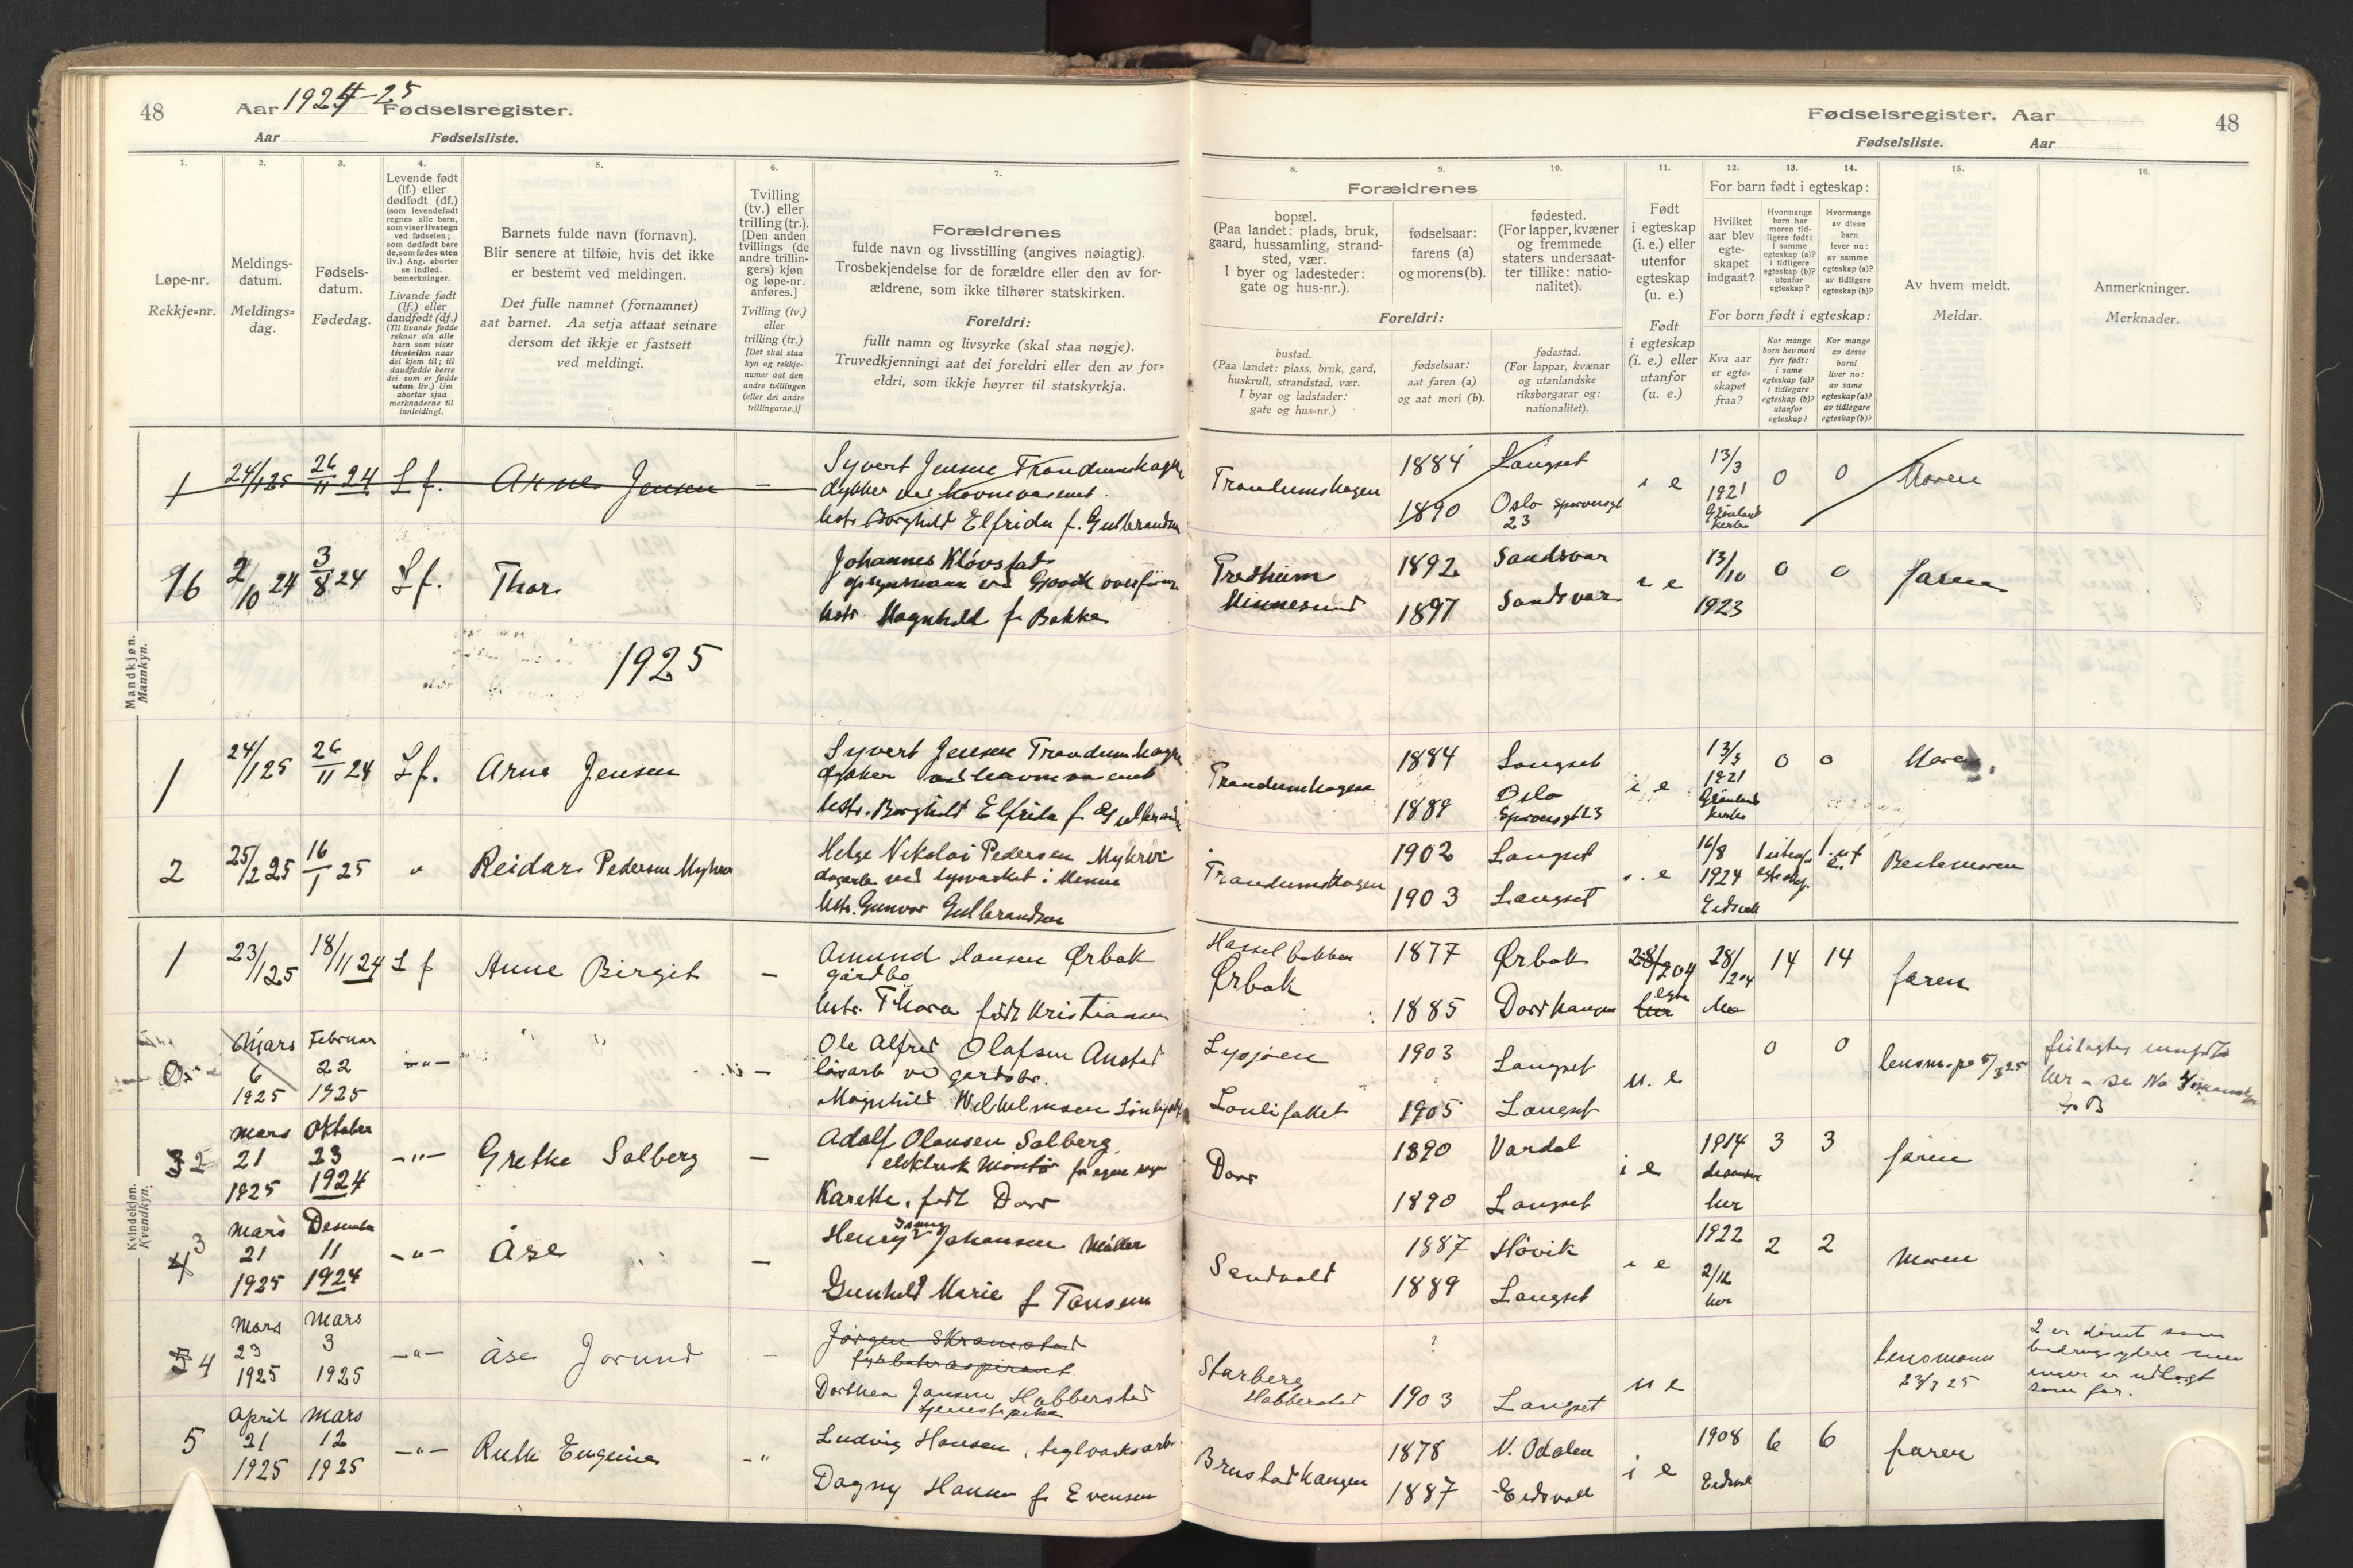 48
Aar 1924-25 Fødselsregister.
Aar Fødselsliste.
1.
2.
3.
4.
5.
6.
7.
Løpe-nr.
Rekkje=nr.
Meldings-
datum.
Meldings=
dag.
Fødsels-
datum.
Fødedag.
Levende født
(lf.) eller
dødfødt (df.)
(som levendefødt
regnes alle barn,
som viser livstegn
ved fødselen;
som dødfødt bare
de, som fødes uten
liv.) Ang. aborter
se indled.
bemerkninger.
Livande født
(lf.) eller
daudfødt (df.)
(Til livande fødde
reknar ein alle
barn som viser
livsteikn naar
dei kjem til; til
daudfødde berre
dei som er fødde
utan liv.) Um
abortar sjaa
merknaderne til
innleidingi.
Barnets fulde navn (fornavn).
Blir senere at tilføie, hvis det ikke
er bestemt ved meldingen.
Det fulle namnet (fornamnet)
aat barnet. Aa setja attaat seinare
dersom det ikkje er fastsett
ved meldingi.
Tvilling
(tv.) eller
trilling (tr.).
[Den anden
tvillings (de
andre trillin-
gers) kjøn
og løpe-nr.
anføres.]
Tvilling (tv.)
eller
trilling (tr.)
[Det skal staa
kyn og rekkje-
numer aat den
andre tvillingen
(eller dei andre
trillingarne.)]
Forældrenes
fulde navn og livsstilling (angives nøiagtig).
Trosbekjendelse for de forældre eller den av for-
ældrene, som ikke tilhører statskirken.
Foreldri:
fullt namn og livsyrke (skal staa nøgje).
Truvedkjenningi aat dei foreldri eller den av for=
eldri, som ikkje høyrer til statskyrkja.
Mandkjøn.
Mannkyn.
1 24/1 25 26/11 24 Lf. Arne Jensen —
Syvert Jensen Trandumshagen
dykker ved havnevæsenet.
hstr. Borghild Elfrida f. Gulbrandsen
16 2/10 24 3/8 24 Lf. Thor
Johannes Kløvstad
hstr. Magnhild f. Bakke
1925
1 24/1 25 26/11 24 Lf. Arne Jensen
Syvert Jensen Trandumshagen
dykker ved havnevæsenet
hstr. Borghild Elfrida f. Gulbrandsen
2 25/2 25 16/1 25 " Reidar Pedersen Myhrer
Helge Nikolai Pedersen Myhrer
hstr. Gunvor Gulbrandsen
Kvindekjøn.
Kvendkyn.
1 23/1 25 18/11 24 Lf Anne Birgit —
Amund Hansen Ørbak
gårdbr.
hstr. Thora født Kristiansen
Mars 6 1925
Februar 22 1925
—"—
Ole Alfred Olafsen Anstad
løsarb ved gårdsbr.
Magnhild Wilhelmsen
3 2
Mars 21 1925
Oktober 23 1924
—"— Grethe Solberg —
Adolf Olausen Solberg
elektrisk Montør for egen regn
Karethe, født Dorr
4 3
Mars 21 1925
Desember 11 1924
—"— Åse —
Henry Johansen Møller
Gunhild Marie f Tansem
5 4
Mars 23 1925
Mars 3 1925
—"— Åse Jorund —
Jørgen Skramstad
fyrbøteraspirant
Dorthea Jansen Habberstad
tjenestepike
5
April 21 1925
Mars 12 1925
—"— Ruth Eugenie —"
Ludvig Hansen, teglverksarb.
Dagny Hansen f. Evensen
Fødselsregister. Aar
48
Fødselsliste. Aar
8.
9.
10.
11.
12.
13.
14.
15.
16.
Forældrenes
bopæl.
(Paa landet: plads, bruk,
gaard, hussamling, strand-
sted, vær.
I byer og ladesteder:
gate og hus-nr.).
fødselsaar:
farens (a)
og morens(b).
fødested.
(For lapper, kvæner
og fremmede
staters undersaat-
ter tillike: natio-
nalitet).
Foreldri:
bustad.
(Paa landet: plass, bruk, gard,
huskrull, strandstad, vær.
I byar og ladstader:
gate og hus=nr.)
fødselsaar:
aat faren (a)
og aat mori (b).
fødestad.
(For lappar, kvænar
og utanlandske
riksborgarar og:
nationalitet).
Født
i egteskap
(i. e.) eller
utenfor
egteskap
(u. e.)
Født
i egteskap
(i. e.) eller
utanfor
egteskap
(u. e.)
For barn født i egteskap:
Hvilket
aar blev
egte-
skapet
indgaat?
Hvormange
barn har
moren tid-
ligere født:
i samme
egteskap (a)?
i tidligere
egteskap (b)?
utenfor
egteskap?
Hvormange
av disse
barn
lever nu:
av samme
egteskap (a)?
av tidligere
egteskap (b)?
For born født i egteskap:
Kva aar
er egte=
skapet
fraa?
Kor mange
born hev mori
fyrr født:
i same
egteskap (a)?
i tidlegare
egteskap (b)?
utanfor
egteskap?
Kor mange
av desse
borni
liver no:
av same
egteskap (a)?
av tidlegare
egteskap (b)?
Av hvem meldt.
Meldar.
Anmerkninger.
Merknader.
Trandumshagen
1884 Langset
1890 Oslo Sporveisgt 23
i e
13/3 1921 Grønland kirke
0 0 Moren
Tredheim
Minnesund
1892 Sandsvær
1897 Sandsvær
i e
13/10 1923
0 0 faren
Trandumshagen
1884 Langset
1889 Oslo Sporveisgt 23
i e
13/3 1921 Grønland kirke
0 0 Moren
Trandumshagen
1902 Langset
1903 Langset
i e
16/8 1924 Eidsvoll
Bestemoren
Hasselbakken
Ørbak
1877 Ørbak
1885 Dorrhaugen
28/2 04
her
28/2 04
14 14 faren
Lysjøen
1903 Langset
1905 Langset
u. e
0 0
lensm. på 5/3 25
feilagtig innført
her - se No
Dorr
1890 Vardal
1890 Langset
i e
1914 desember her
3 3 faren
Sandvold
1887 Høvik
1889 Langset
i e
1922 2/12 her
2 2 Moren
Starberg
Habberstad
?
1903 Langset
u e
lensmann
23/3 25
2 er dømt som
bidragsydere men
ingen er utlagt
som far.
Brustadhaugen
1878 N. Odalen
1887 Eidsvoll
i e
1908 Eidsvoll
6 6 faren